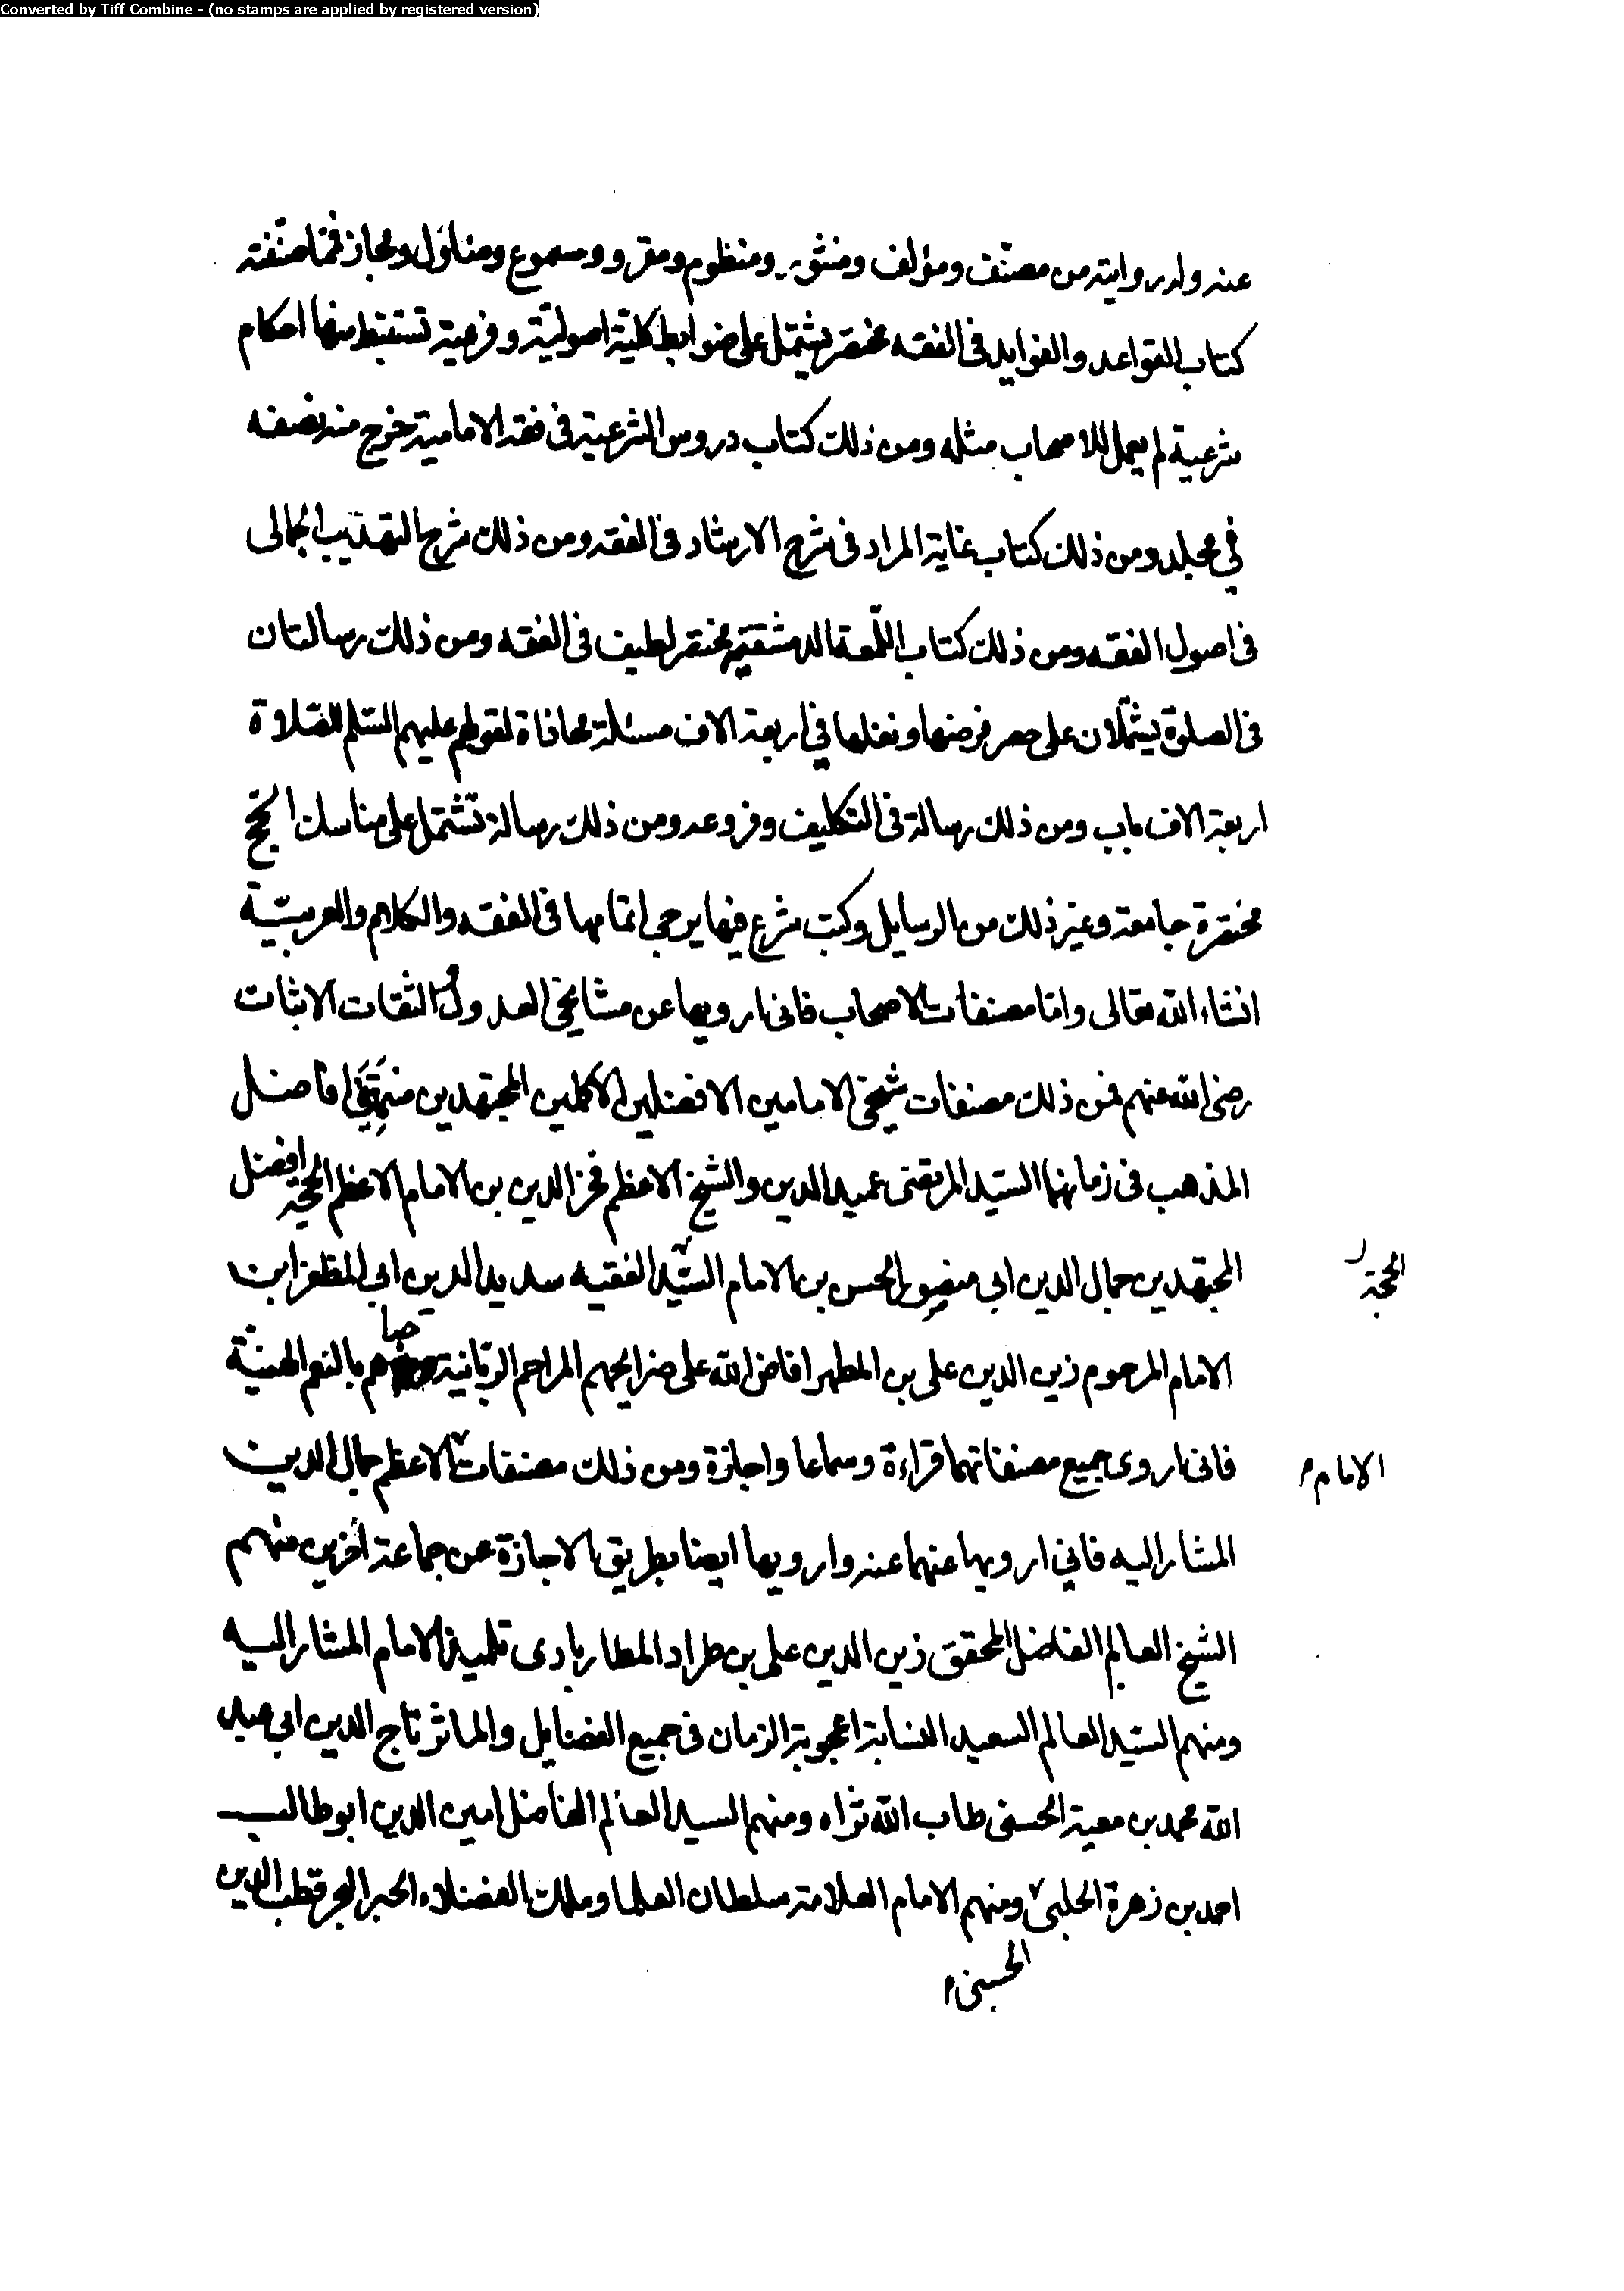 Converted by Tiff Combine - (no stamps are applied by registered version)
عنه وله روايته من مصنف ومؤلف ومنثور ومنظوم ومقرو ومسموع ومناول ومجاز فمما صنفته
كتاب القواعد والفوايد فى الفقه مختصر يشتمل على ضوابط كلية اصولية وفرعية تستنبط منها احكام
شرعية لم يعمل للاصحاب مثله ومن ذلك كتاب دروس الشرعية فى فقه الامامية خرج منه نصفه
في مجلد ومن ذلك كتاب غاية المراد فى شرح الارشاد فى الفقه ومن ذلك شرح التهذيب الجمالى
فى اصول الفقه ومن ذلك كتاب اللمعة الدمشقية مختصر لطيف فى الفقه ومن ذلك رسالتان
فى الصلوة يشتملان على حصر فرضها ونفلها في اربعة الاف مسئلة محاذاة لقولهم عليهم السلم للصلاة
اربعة الاف باب ومن ذلك رسالة فى التكليف وفروعه ومن ذلك رسالة تشتمل على مناسك الحج
مختصرة جامعة وغير ذلك من الرسايل وكتب شرع فيها يرجى اتمامها فى الفقه والكلام والعربية
انشاء الله تعالى واما مصنفات الاصحاب فانى ارويها عن مشايخى العدول الثقات الاثبات
رضى الله عنهم فمن ذلك مصنفات شيخى الامامين الافضلين الاكملين المجتهدين منتهى افاضل
المذهب فى زمانهما السيد المرتضى عميد الدين والشيخ الاعظم فخر الدين بن الامام الاعظم الحجة افضل
المجتهدين جمال الدين ابى منصور الحسن بن الامام السيد الفقيه سديد الدين ابى المظفر ابن
الحجة
الامام المرحوم زين الدين على بن المطهر افاض الله على ضرايحهم المراحم الربانية حباهم بالنعم الهنية
فانى اروى جميع مصنفاتهما قراءة وسماعا واجازة ومن ذلك مصنفات الاعظم جمال الدين
الامام م
المشار اليه فاني ارويها عنهما عنه وارويها ايضا بطريق الاجازة عن جماعة اخرين منهم
الشيخ العالم الفاضل المحقق زين الدين على بن طراد المطاربادى تلميذ الامام المشار اليه
ومنهم السيد العالم السعيد النسابة اعجوبة الزمان فى جميع الفضايل والماثر تاج الدين ابى عبد
الله محمد بن معية الحسنى طاب الله ثراه ومنهم السيد العالم الفاضل امين الدين ابو طالب
احمد بن زهرة الحلبى ومنهم الامام العلامة سلطان العلما وملك الفضلاء الحبر البحر قطب الدين
الحسينى م